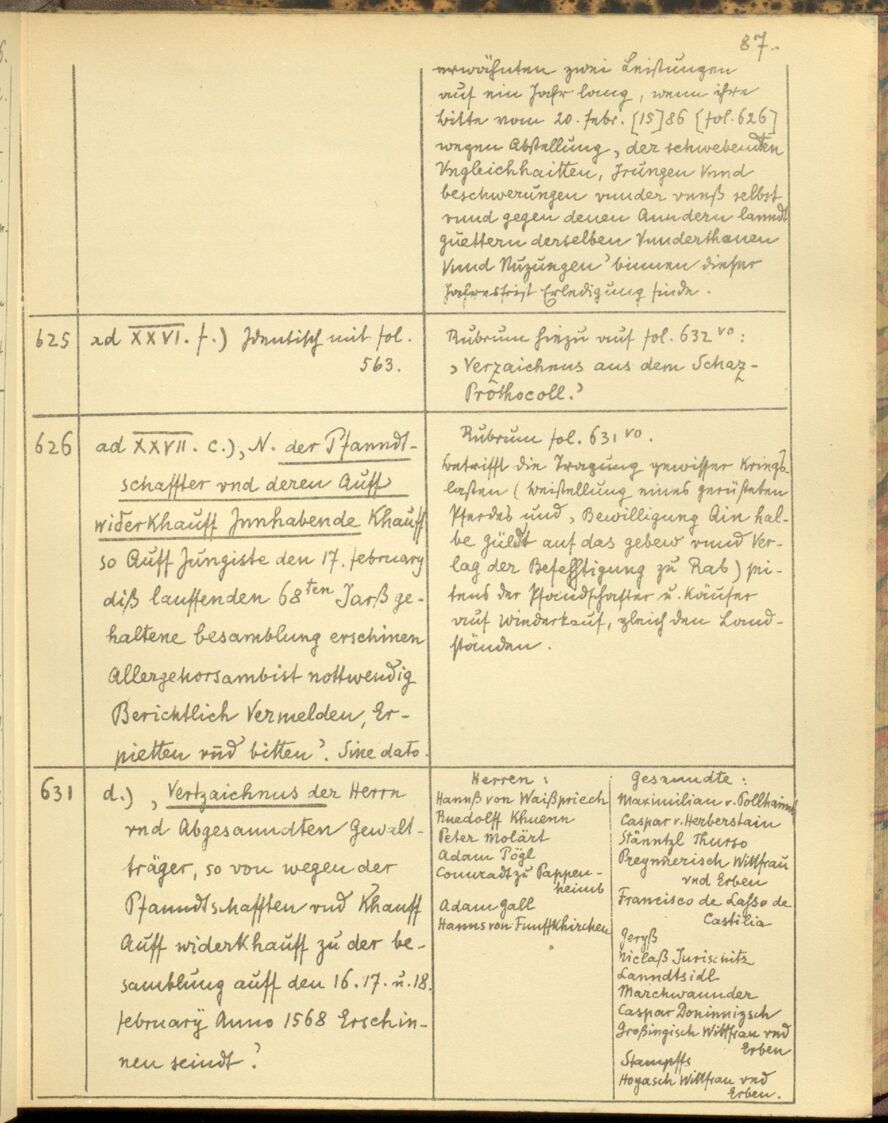 87.
erwähnten zwei Leistungen
auf ein Jahr lang, wenn ihre
Bitte vom 20. febr. [15]86 [fol. 626]
wegen Abstellung, der schwebenden
Vngleichhaitten, Irungen Vnnd
beschwerungen vnnder vnnß selbst
vnnd gegen denen Anndern lanndt
güettern derselben Vnnderthanen
Vnnd Nuzungen' binnen dieser
Jahresfrist Erledigung finde.
625
ad XXVI. f.) Identisch mit fol.
563.
Rubrum hiezu auf fol. 632 vo:
‚Verzaichnus aus dem Schaz-
Prothocoll.'
626
ad XXVII. c.) ‚N. der Pfanndt-
schaffter vnd deren Auff
widerkhauff Innhabende Khauff
so Auff Jungiste den 17. february
diß lauffenden 68ten Jarß ge-
haltene besamblung erschinen
Allergehorsambist nottwendig
Berichtlich Vermelden, Er-
pietten vnd bitten'. Sine dato.
Rubrum fol. 631 vo.
betrifft die Tragung gewisser Kriegs-
lasten (Beistellung eines gerüsteten
Pferdes und ‚Bewilligung Ain hal-
be güldt auf das gebew vnnd Ver-
lag der Befestigung zu Rab) sei-
tens der Pfandschafter u. Käufer
auf Wiederkauf, gleich den Land-
ständen.
631
d.) ‚Vertzaichnus der Herrn
vnd Abgesanndten Gewalt-
träger, so von wegen der
Pfanndtschafften vnd Khauff
Auff widerkhauff zu der be-
samblung auff den 16. 17. u. 18.
februarÿ Anno 1568 Erschin-
nen seindt'
Herren:
Hannß von Waißpriech
Ruedolff Khuenn
Peter Molärt
Adam Pögl
Connradt zu Pappen-
heimb
Adam Gall
Hanns von Funffkhirchen
Gesanndte:
Maximilian v. Pollhaimb
Caspar v. Herberstain
Stänntzl Thurso
Preynnerisch Wittfrau
vnd Erben
Francisco de Lasso de
Castilia
Geryß
Niclaß Jurischitz
Lanndtsidl
Marchwannder
Caspar Doninnigsch
Großingisch Wittfrau vnd
Erben
Stampffs
Hoyasch Wittfrau vnd
Erben.